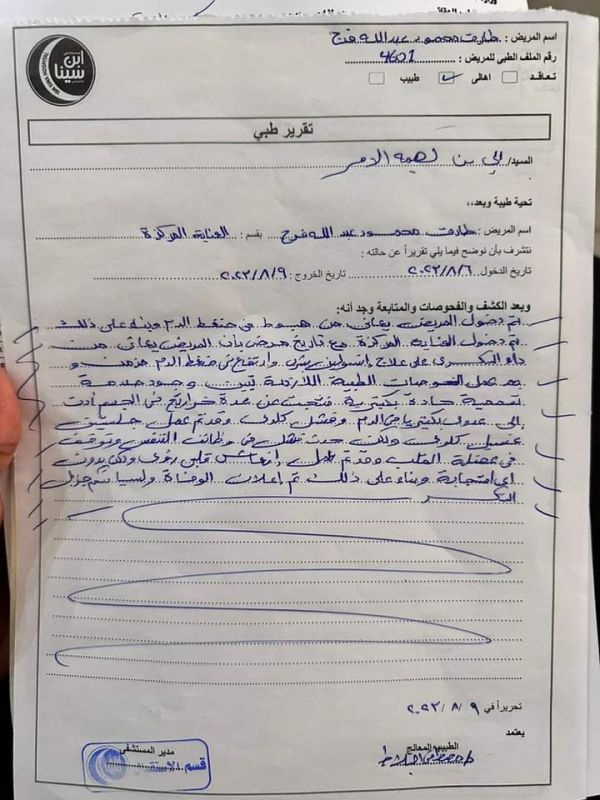 ابن سينا
اسم المريض : طارق محمود عبد الله فرج
رقم الملف الطبى للمريض : 4601
تعاقد أهالى طبيب
تقرير طبي
السيد/ إلى من يهمه الأمر
تحية طيبة وبعد،،
اسم المريض : طارق محمود عبد الله فرج بقسم : العناية المركزة
نتشرف بأن نوضح فيما يلي تقريراً عن حالته :
تاريخ الدخول ٢٠٢٢/٨/٦ تاريخ الخروج : ٢٠٢٢/٨/٩
وبعد الكشف والفحوصات والمتابعة وجد أنه:
تم دخول المريض يعانى من هبوط فى ضغط الدم وبنه على ذلك
تم دخول العناية المركزة مع تاريخ مرضى بأن المريض يعانى من
داء السكرى على علاج إنسولين بشرى وارتفاع فى ضغط الدم مزمن و
بعد عمل الفحوصات الطبية اللازمة تبين وجود صدمة
تسممية حادة بكتيرية فنتجت عن عدة خراريج فى الجسم أدت
إلى عدوى بكتيريا فى الدم وفشل كلوى وقد تم عمل جلستين
غسيل كلوى ولكن حدث فشل فى وظائف التنفس وتوقف
فى عضلة القلب وقد تم عمل إنعاش قلبى رئوى ولكن بدون
اى استجابة وبناء على ذلك تم إعلان الوفاة
تحريراً في ٢٠٢٢/٨/٩
يعتمد
الطبيب المعالج مدير المستشفى
قسم الاستقبال